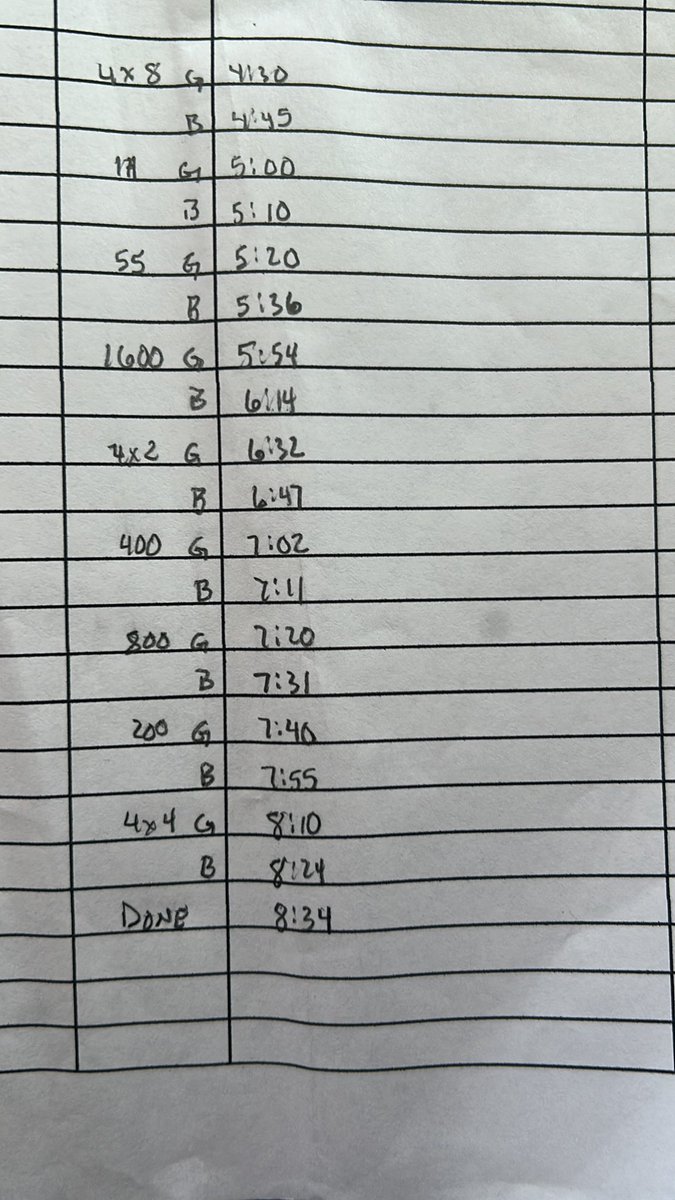 4x8 G 4:30
B 4:45
G 5:00
B 5:10
55 G 5:20
B 5:36
1600 G 5:54
B 6:14
4x2 G 6:32
B 6:47
400 G 7:02
B 7:11
800 G 7:20
B 7:31
200 G 7:40
B 7:55
4x4 G 8:10
B 8:24
DONE 8:34